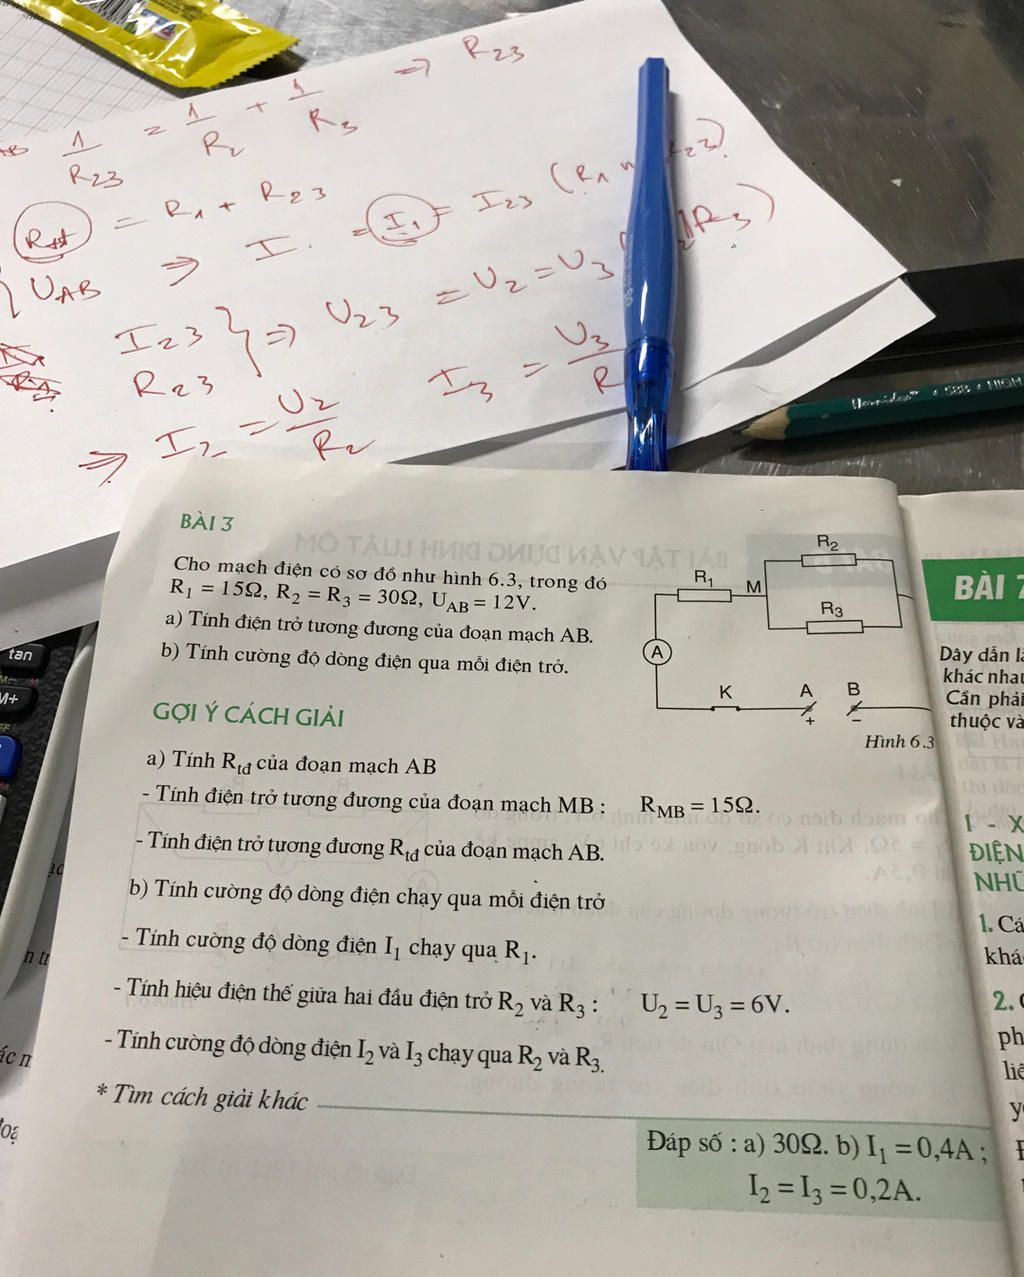 1/R23 = 1/R2 + 1/R3 => R23
Rtđ = R1 + R23
UAB => I = I1 = I23 (R1
I23
R23 } => U23 = U2 = U3
=> I2 = U2/R2 I3 = U3/R
tan
M+
BÀI 3
Cho mạch điện có sơ đồ như hình 6.3, trong đó
R₁ = 15Ω, R₂ = R₃ = 30Ω, U_AB = 12V.
a) Tính điện trở tương đương của đoạn mạch AB.
b) Tính cường độ dòng điện qua mỗi điện trở.
R₂
R₁
M
R₃
A
K
A
B
+
−
Hình 6.3
GỢI Ý CÁCH GIẢI
a) Tính R_tđ của đoạn mạch AB
- Tính điện trở tương đương của đoạn mạch MB : R_MB = 15Ω.
- Tính điện trở tương đương R_tđ của đoạn mạch AB.
b) Tính cường độ dòng điện chạy qua mỗi điện trở
- Tính cường độ dòng điện I₁ chạy qua R₁.
- Tính hiệu điện thế giữa hai đầu điện trở R₂ và R₃ : U₂ = U₃ = 6V.
- Tính cường độ dòng điện I₂ và I₃ chạy qua R₂ và R₃.
* Tìm cách giải khác
Đáp số : a) 30Ω. b) I₁ = 0,4A ;
I₂ = I₃ = 0,2A.
BÀI
Dây dẫn
khác
Cần phải
thuộc
I - X
ĐIỆN
1. Cá
khá
2.
ph